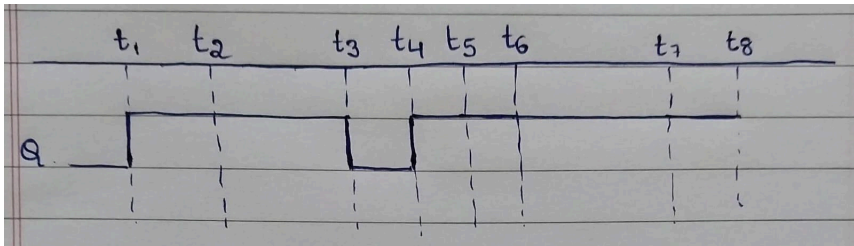 t₁ t₂ t₃ t₄ t₅ t₆ t₇ t₈
Q